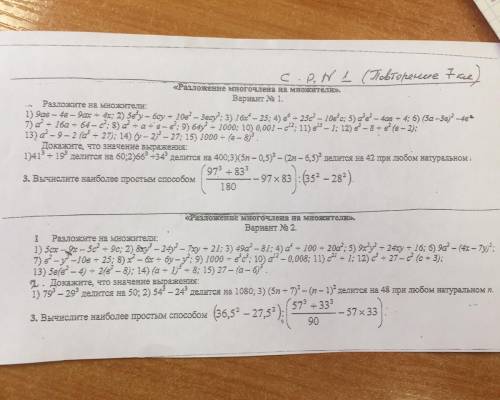 С.Р. №1 (Повторение 7 кл)
«Разложение многочлена на множители».
Вариант № 1.
Разложите на множители:
1) 9ав – 4в – 9ах + 4х; 2) 5в²у – 6су + 10в² – 3 3) 16х⁴ – 25; 4) в⁶ + 25с² – 10в³с; 5) а²в² – 4ав + 4; 6) (3а – 3в)² – 4в²
7) а² + 16а + 64 – с²; 8) а² + а + в – в²; 9) 64у³ + 1000; 10) 0,001 – с¹²; 11) в¹⁵ – 1; 12) в³ – 8 + в² (в – 2);
13) а² – 9 – 2 (а³ + 27); 14) (у – 2)³ – 27; 15) 1000 + (в – 8)³.
Докажите, что значение выражения:
1) 41³ + 19³ делится на 60; 2) 66³ + 34³ делится на 400; 3) (5n – 0,5)² – (2n – 6,5)² делится на 42 при любом натуральном
3. Вычислите наиболее простым способом (97³ + 83³ / 180 – 97×83) : (35² – 28²).
«Разложение многочлена на множители».
Вариант № 2.
1 Разложите на множители:
1) 5сх – 9х – 5с² + 9с; 2) 8ху³ – 24у³ – 7ху + 21; 3) 49а² – 81; 4) а⁴ + 100 + 20а²; 5) 9х²у² + 24ху + 16; 6) 9а² – (4х – 7у)²;
7) в² – у² – 10в + 25; 8) х² – 6х + 6у – у²; 9) 1000 + в³с³; 10) а¹² – 0,008; 11) с²¹ + 1; 12) с³ + 27 – с² (с + 3);
13) 5в(в² – 4) + 2(в³ – 8); 14) (а + 1)³ + 8; 15) 27 – (а – 6)³.
2. Докажите, что значение выражения:
1) 79³ – 29³ делится на 50; 2) 54³ – 24³ делится на 1080; 3) (5n + 7)² – (n – 1)² делится на 48 при любом натуральном n.
3. Вычислите наиболее простым способом (36,5² – 27,5²) : (57³ + 33³ / 90 – 57×33)